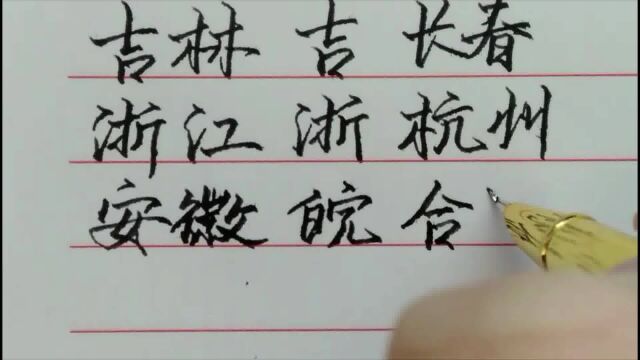 吉林 吉 长春
浙江 浙 杭州
安徽 皖 合